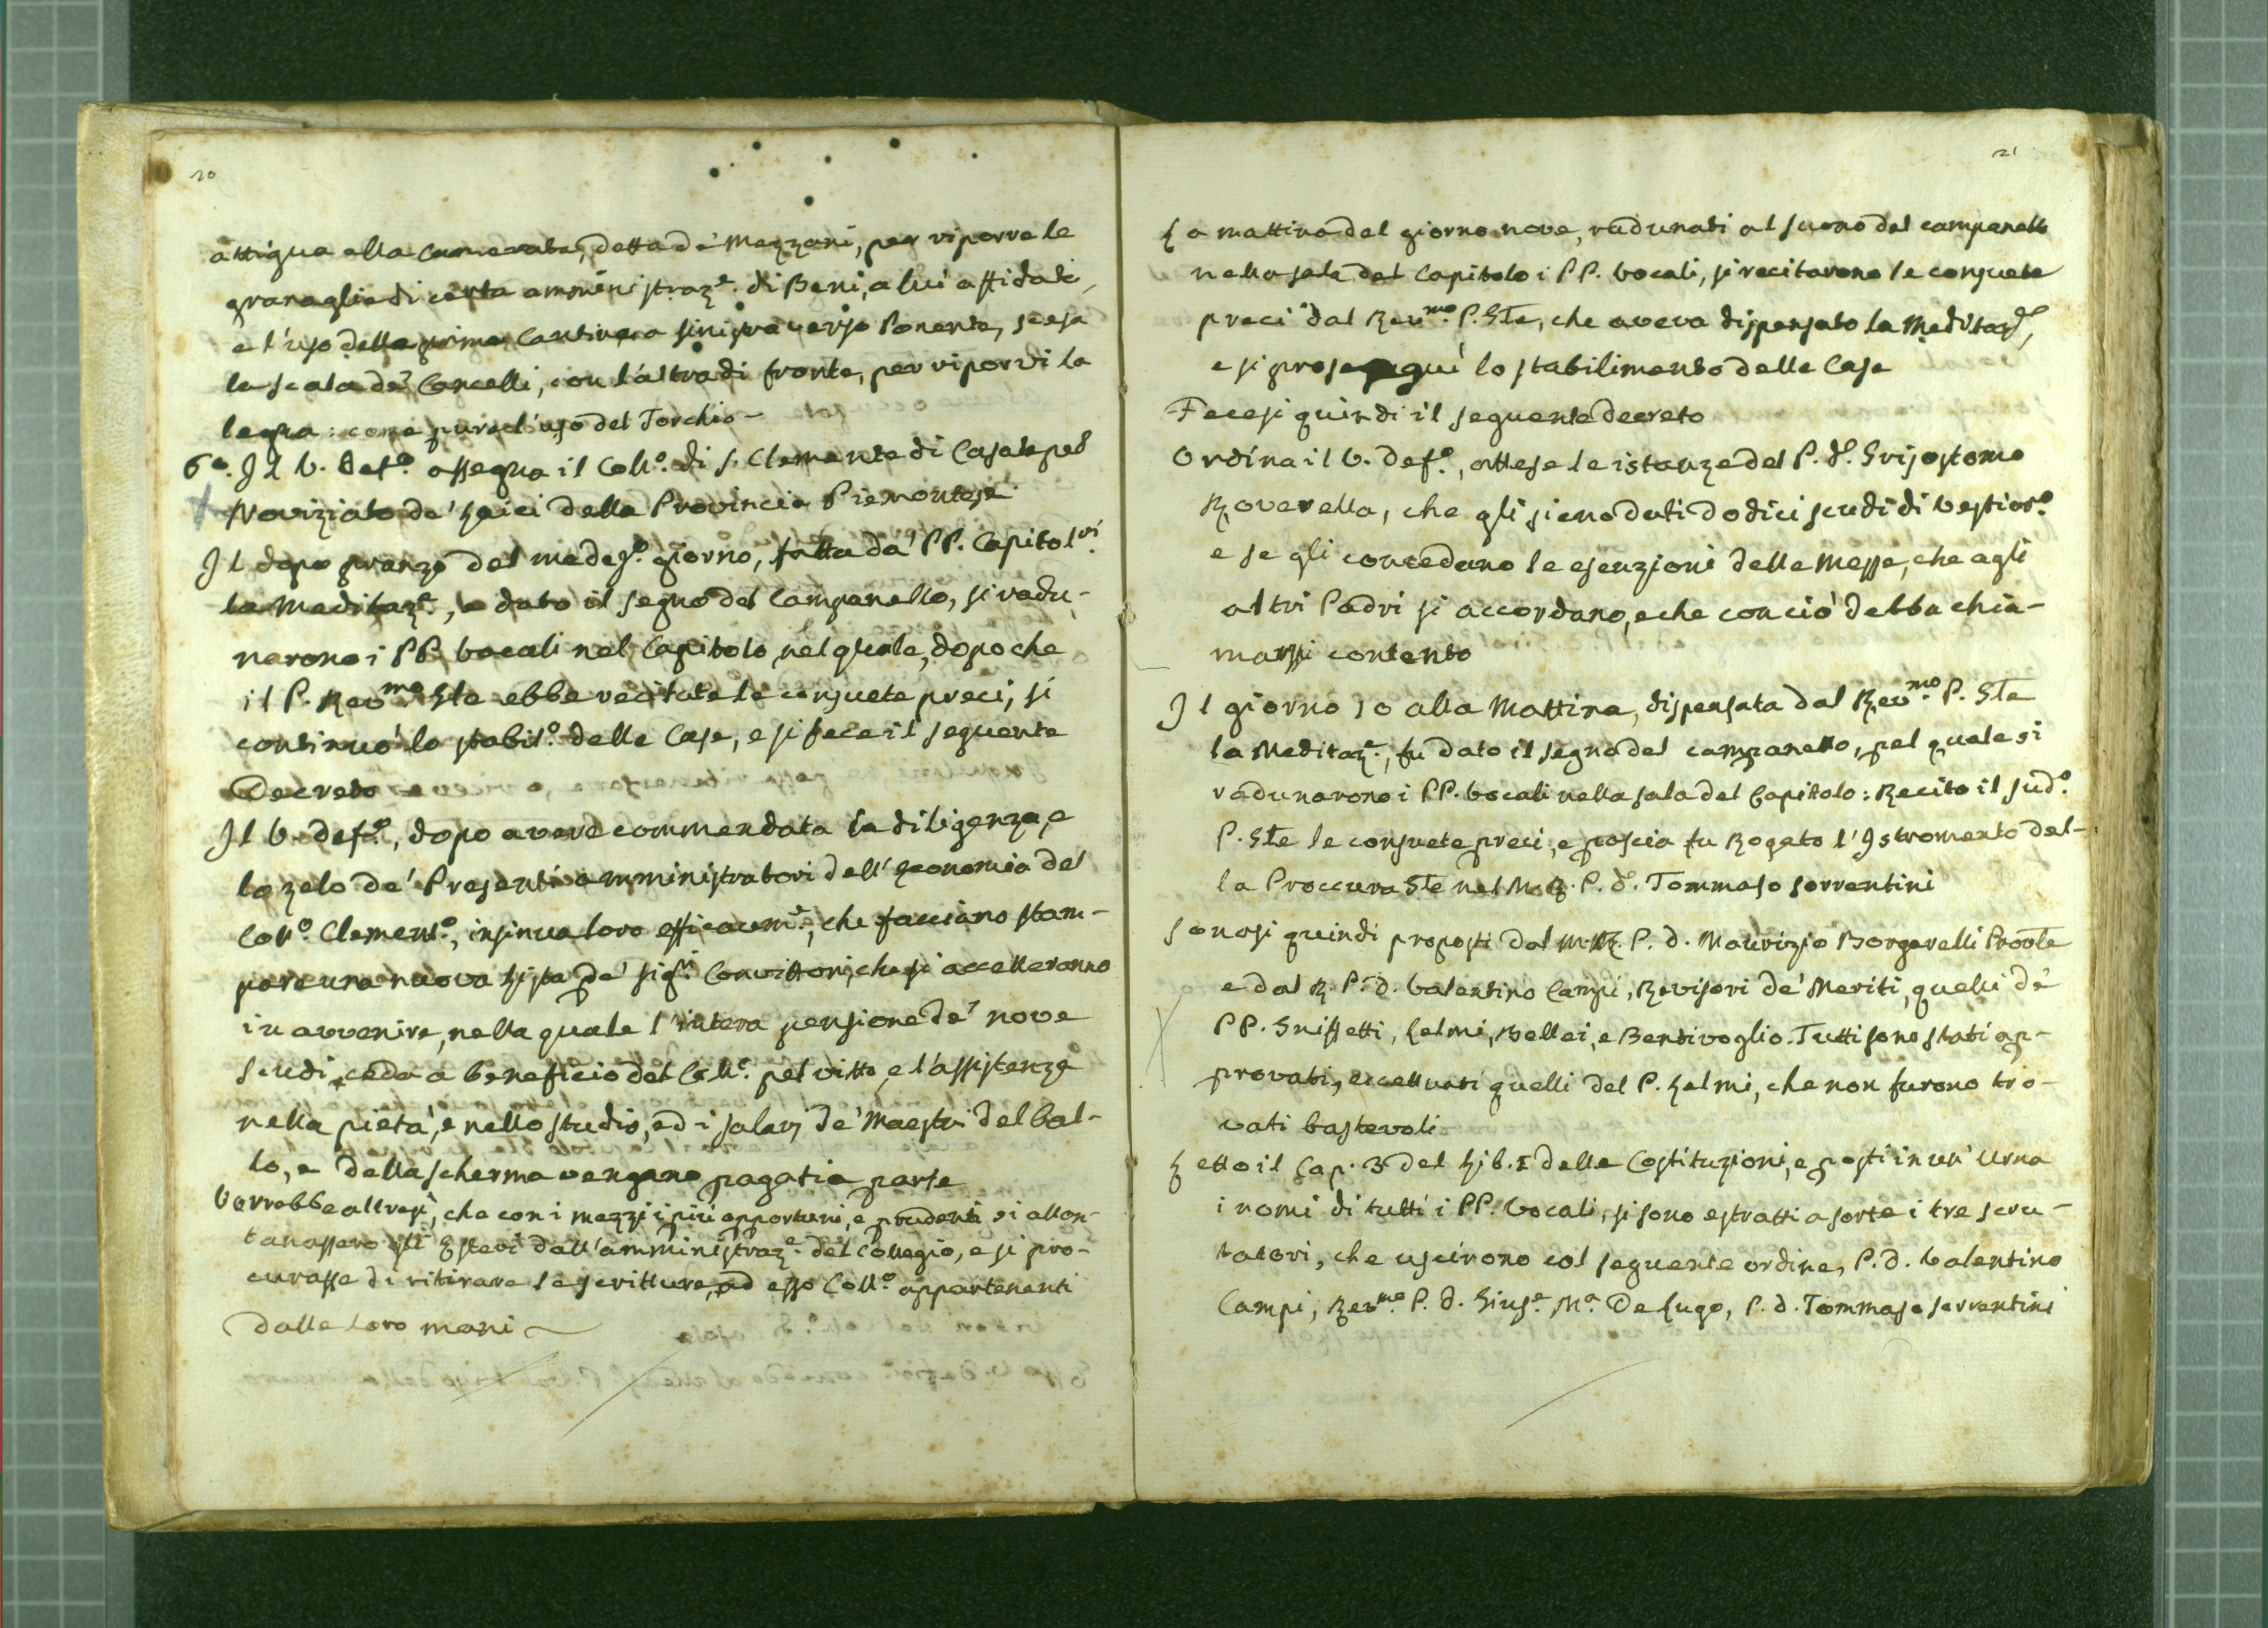 20
attigua alla Camerata, detta de' Mezzani, per riporre le
granaglie di certa amministraz.e di Beni, a lui affidati,
e l'uso della prima Cantina a sinistra verso Ponente, scesa
la scala de' Cancelli, con l'altra di fronte, per riporvi la
legna: come pure l'uso del Torchio –
6°. Il V. Def.o assegna il Coll.o di S. Clemente di Casale pel
Noviziato de' Laici della Provincia Piemontese
Il dopo pranzo del medes.o giorno, fatta da' PP. Capitol.ri
la Meditaz.e, e dato il segno del Campanello, si radu-
narono i PP. Vocali nel Capitolo, nel quale, dopo che
il P. Rev.mo Gle ebbe recitate le consuete preci, si
continuò lo stabil.o delle Case, e si fece il seguente
Decreto
Il V. Def.o, dopo avere commendata la diligenza, e
lo zelo de' Presenti amministratori dell' Economia del
Coll.o Clement.o, insinua loro efficacem.e, che facciano stam-
pare una nuova Lista de' Sig.ri Convittori, che si accetteranno
in avvenire, nella quale l'intera pensione de' nove
scudi ceda a beneficio del Coll.o pel vitto, e l'assistenza
nella pietà, e nello studio, ed i salarj de' Maestri del bal-
lo, e della scherma vengano pagati a parte
Vorrebbe altresì, che con i mezzi i più opportuni, e prudenti si allon-
tanassero gli Esteri dall' amministraz.e del Collegio, e si pro-
curasse di ritirare le scritture, ad esso Coll.o appartenenti
dalle loro mani
21
La mattina del giorno nove, radunati al suono del campanello
nella sala del Capitolo i PP. Vocali, si recitarono le consuete
preci dal Rev.mo P. Gle, che aveva dispensato la Meditaz.e,
e si proseguì lo stabilimento delle Case
Fecesi quindi il seguente decreto
Ordina il V. Def.o, attese le istanze del P. d. Grisostomo
Roverella, che gli sieno dati dodici scudi di Vestiar.o
e se gli concedano le esenzioni delle Messe, che agli
altri Padri si accordano, e che con ciò debba chia-
marsi contento
Il giorno 10 alla Mattina, dispensata dal Rev.mo P. Gle
la Meditaz.e, fu dato il segno del campanello, pel quale si
radunarono i PP. Vocali nella sala del Capitolo: Recitò il sud.o
P. Gle le consuete preci, e poscia fu Rogato l'Istromento del-
la Proccura Gle nel M. R. P. d. Tommaso Sorrentini
Sonosi quindi proposti dal M. R. P. d. Maurizio Borgarelli Provle
e dal R. P. d. Valentino Campi, Revisori de' Meriti, quelli de'
PP. Grissetti, Lelmi, Bellei, e Bentivoglio. Tutti sono stati ap-
provati, eccettuati quelli del P. Lelmi, che non furono tro-
vati bastevoli
Letto il Cap. 3 del Lib. I delle Costituzioni, e posti in un' Urna
i nomi di tutti i PP. Vocali, si sono estratti a sorte i tre scru-
tatori, che uscirono col seguente ordine, P. d. Valentino
Campi, Rev.mo P. d. Gius.e M.a De Lugo, P. d. Tommaso Sorrentini